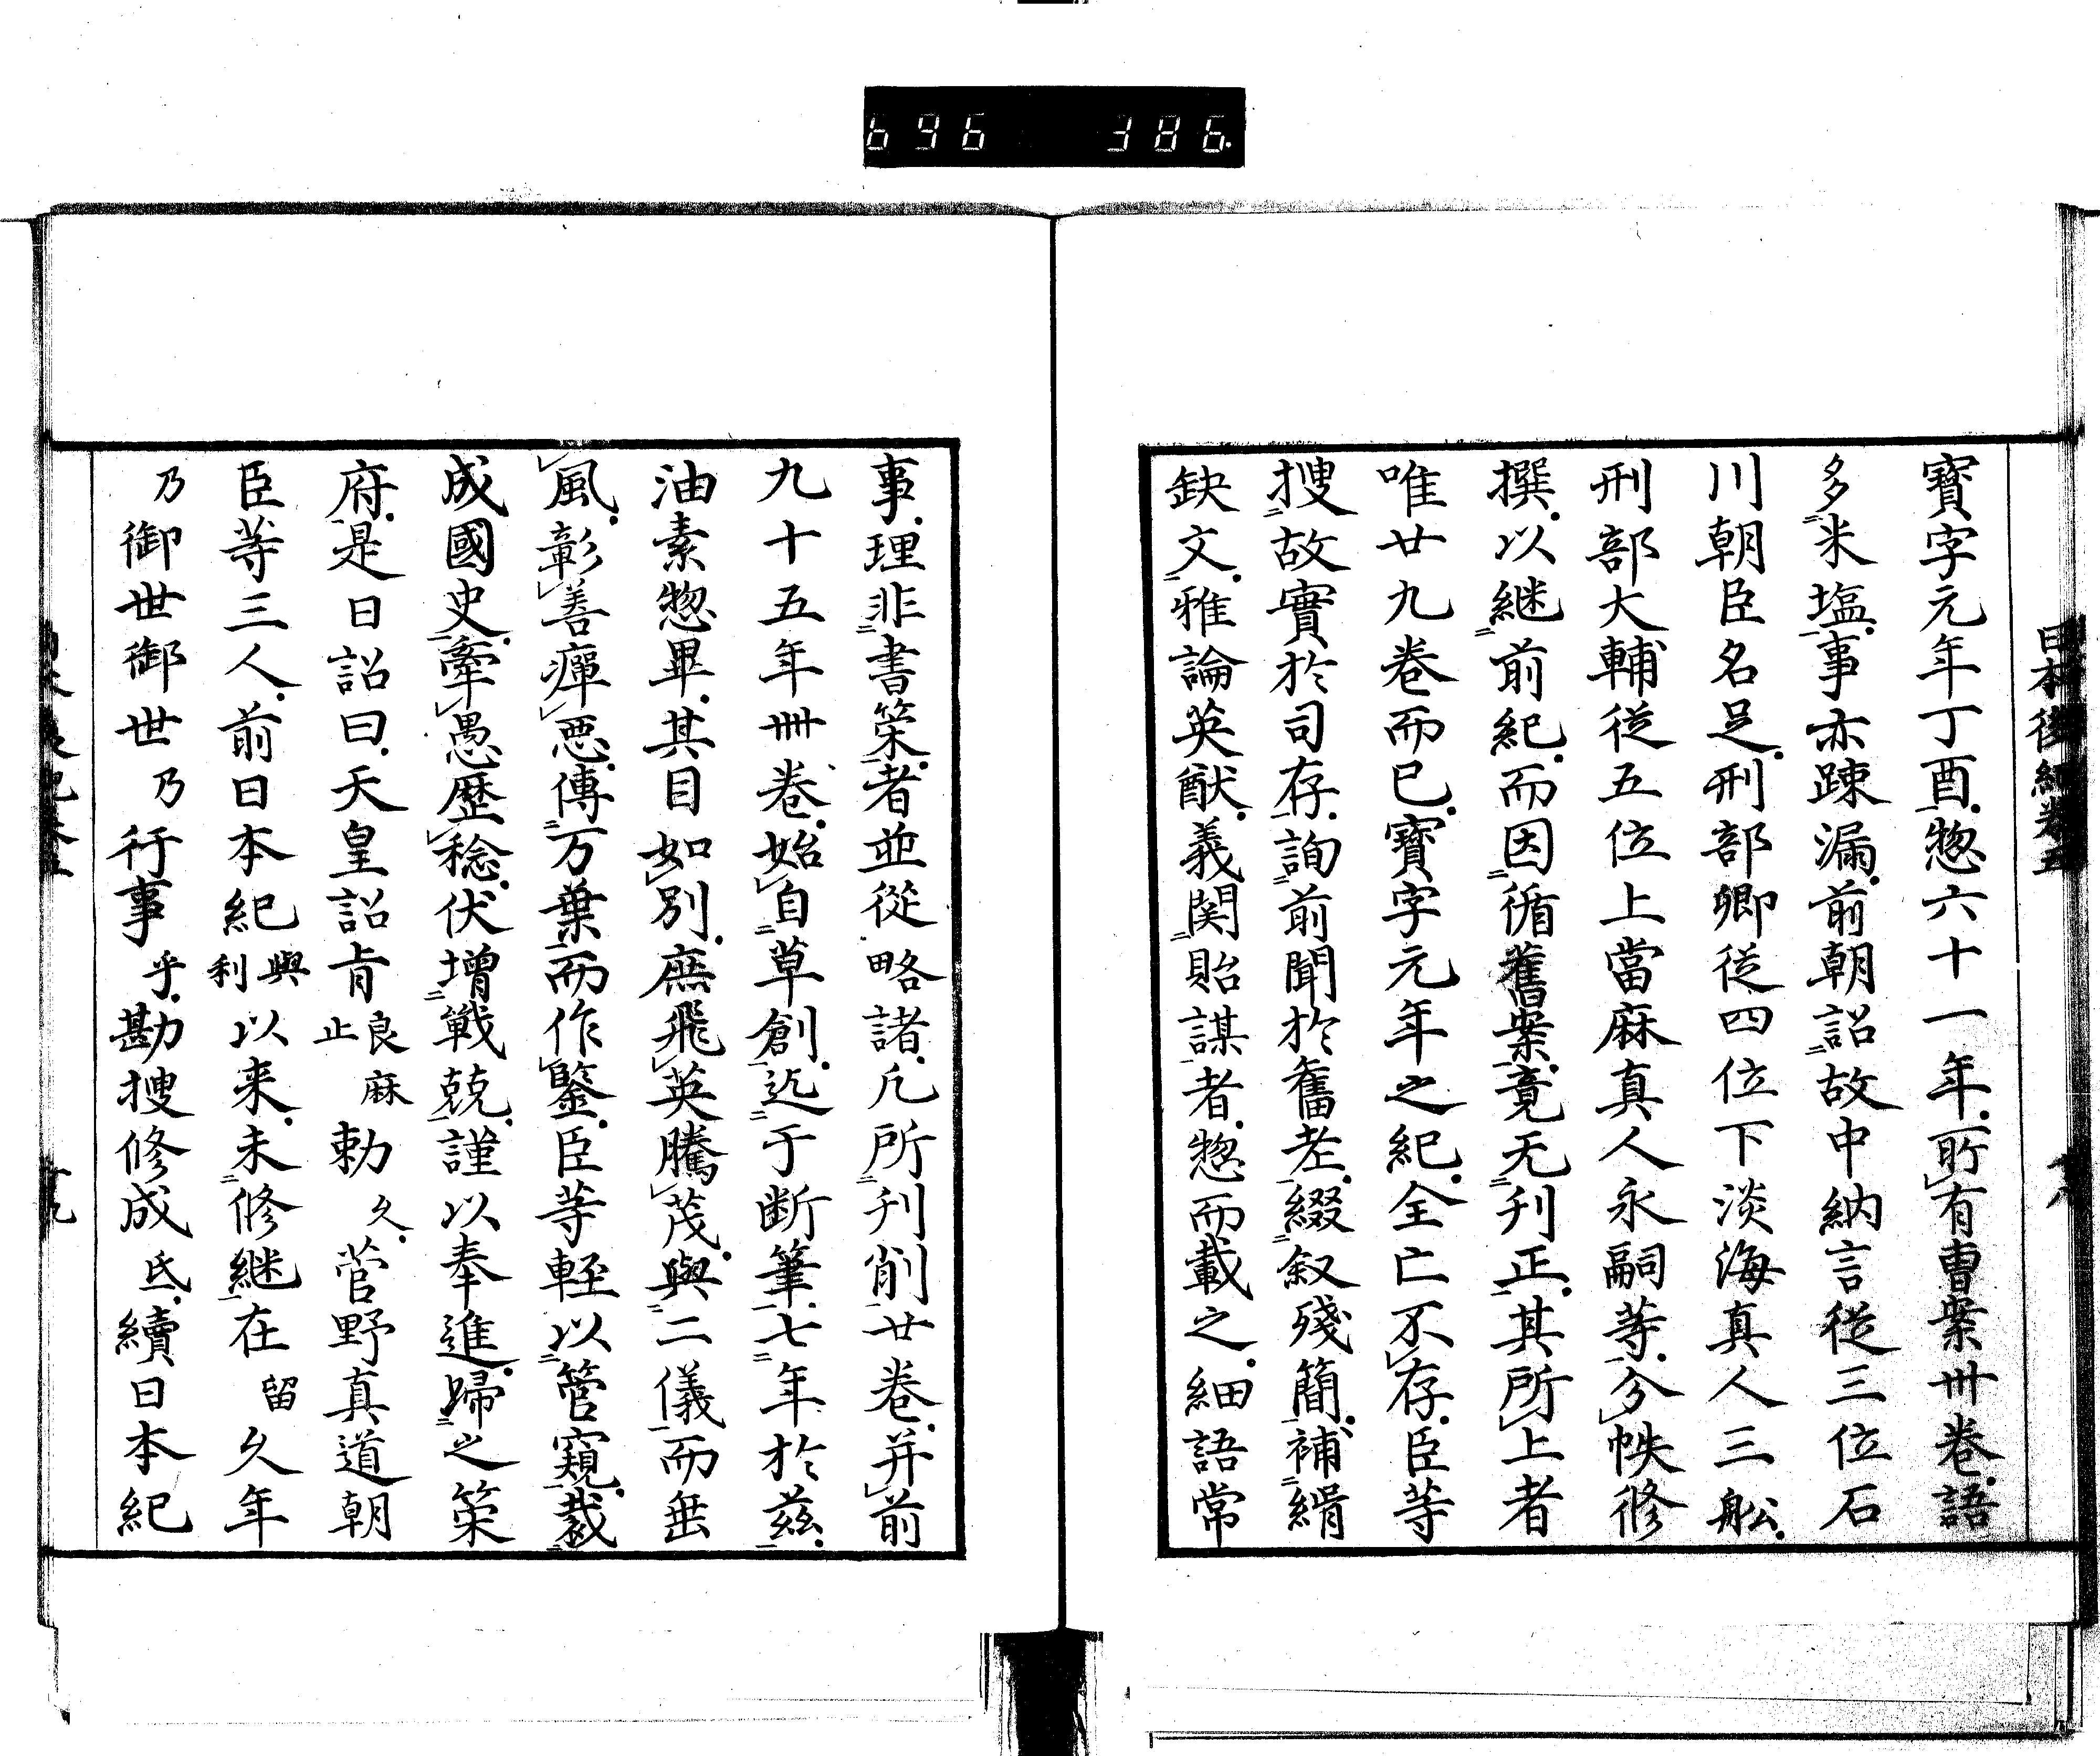 696 386
日本後紀卷五
十八
寶字元年丁酉惣六十一年所有曹案卅卷語
多米塩事亦踈漏前朝詔故中納言從三位石
川朝臣名足刑部卿從四位下淡海真人三舩
刑部大輔從五位上當麻真人永嗣等分帙修
撰以継前紀而因循舊案竟无刊正其所上者
唯廿九卷而已寶字元年之紀全亡不存臣等
搜故實於司存詢前聞於舊老綴叙殘簡補緝
缺文雅論英猷義関貽謀者惣而載之細語常
事理非書策者並從略諸凡所刊削廿卷并前
九十五年卌卷始自草創迄于断筆七年於茲
油素惣畢其目如別庶飛英騰茂與二儀而垂
風彰善癉惡傳万葉而作鑒臣等輕以管窺裁
成國史牽愚歷稔伏增戦兢謹以奉進歸之策
府是日詔曰天皇詔旨良麻止勅久菅野真道朝
臣等三人前日本紀與利以来未修継在留久年
乃御世御世乃行事乎勘搜修成氐續日本紀